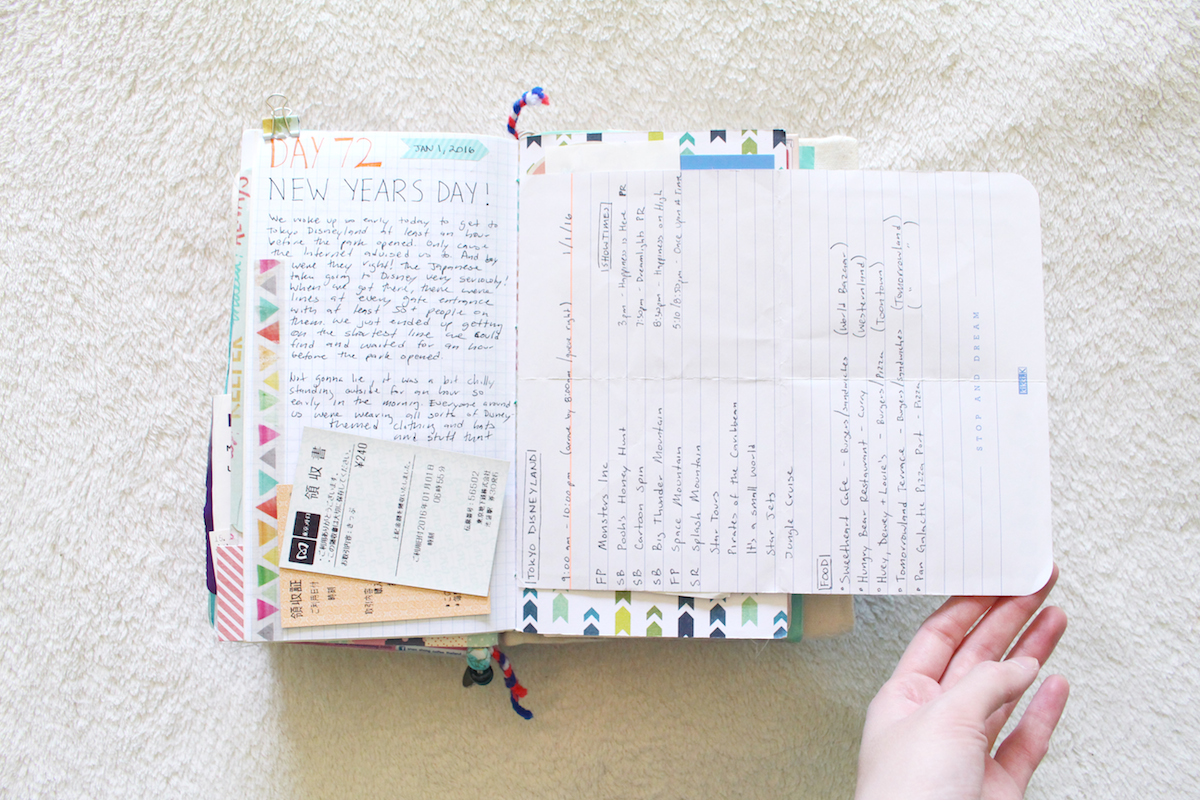 DAY 72
JAN 1, 2016
NEW YEARS DAY!
We woke up so early today to get to
Tokyo Disneyland at least an hour
before the park opened. Only cause
the Internet advised us to. And boy
were they right! The Japanese
take going to Disney very seriously!
When we got there, there were
lines at every gate entrance
with at least 50+ people on
them. We just ended up getting
on the shortest line we could
find and waited for an hour
before the park opened.
Not gonna lie, it was a bit chilly
standing outside for an hour so
early in the morning. Everyone around
us were wearing all sorts of Disney
themed clothing and hats
and stuff that
領収書
¥240
ご利用ありがとうございます。
・この領収書は大切に保存してください。
お取引内容:きっぷ
上記金額を領収いたしました。
ご利用日付2016年01月01日
時刻 06時55分
伝票番号:56502
東京地下鉄株式会社
領収証
ご利用日付
時刻
取引内容
TOKYO DISNEYLAND
9:00 am - 10:00 pm (arrive by 8:00am/gate right) 1/1/16
FP Monsters Inc
SB Pooh's Honey Hunt
SB Cartoon Spin
SB Big Thunder Mountain
FP Space Mountain
SR Splash Mountain
Star Tours
Pirates of the Caribbean
It's a small world
Star Jets
Jungle Cruise
SHOWTIMES
3pm - Happiness is Here PR
7:30pm - Dreamlights PR
8:30pm - Happiness on High
5:10/8:50pm - Once Upon A Time
FOOD
• Sweetheart Cafe - Burgers/sandwiches (World Bazaar)
• Hungry Bear Restaurant - Curry (Westernland)
• Huey, Dewey + Louie's - Burgers/Pizza (Toontown)
• Tomorrowland Terrace - Burgers/sandwiches (Tomorrowland)
• Pan Galactic Pizza Port - Pizza ( " " )
STOP AND DREAM